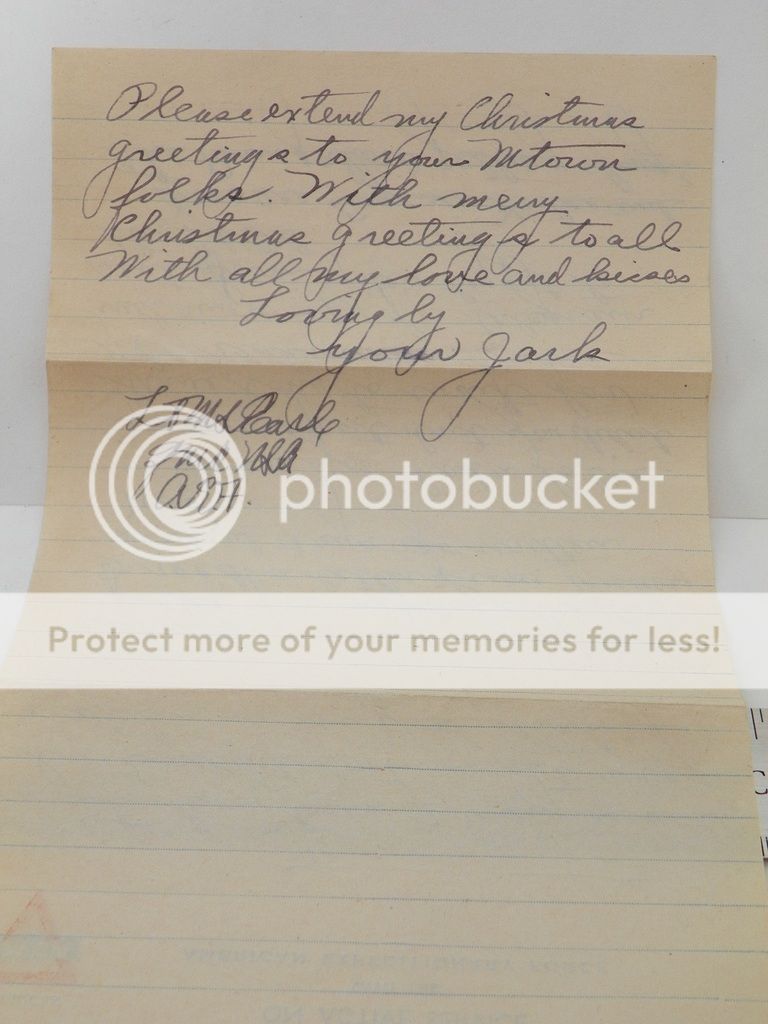 Please extend my Christmas
greetings to your Mtown
folks. With merry
Christmas greetings to all
With all my love and kisses
Lovingly
your Jack
photobucket
Protect more of your memories for less!
AMERICAN EXPEDITIONARY FORCE
ON ACTIVE SERVICE